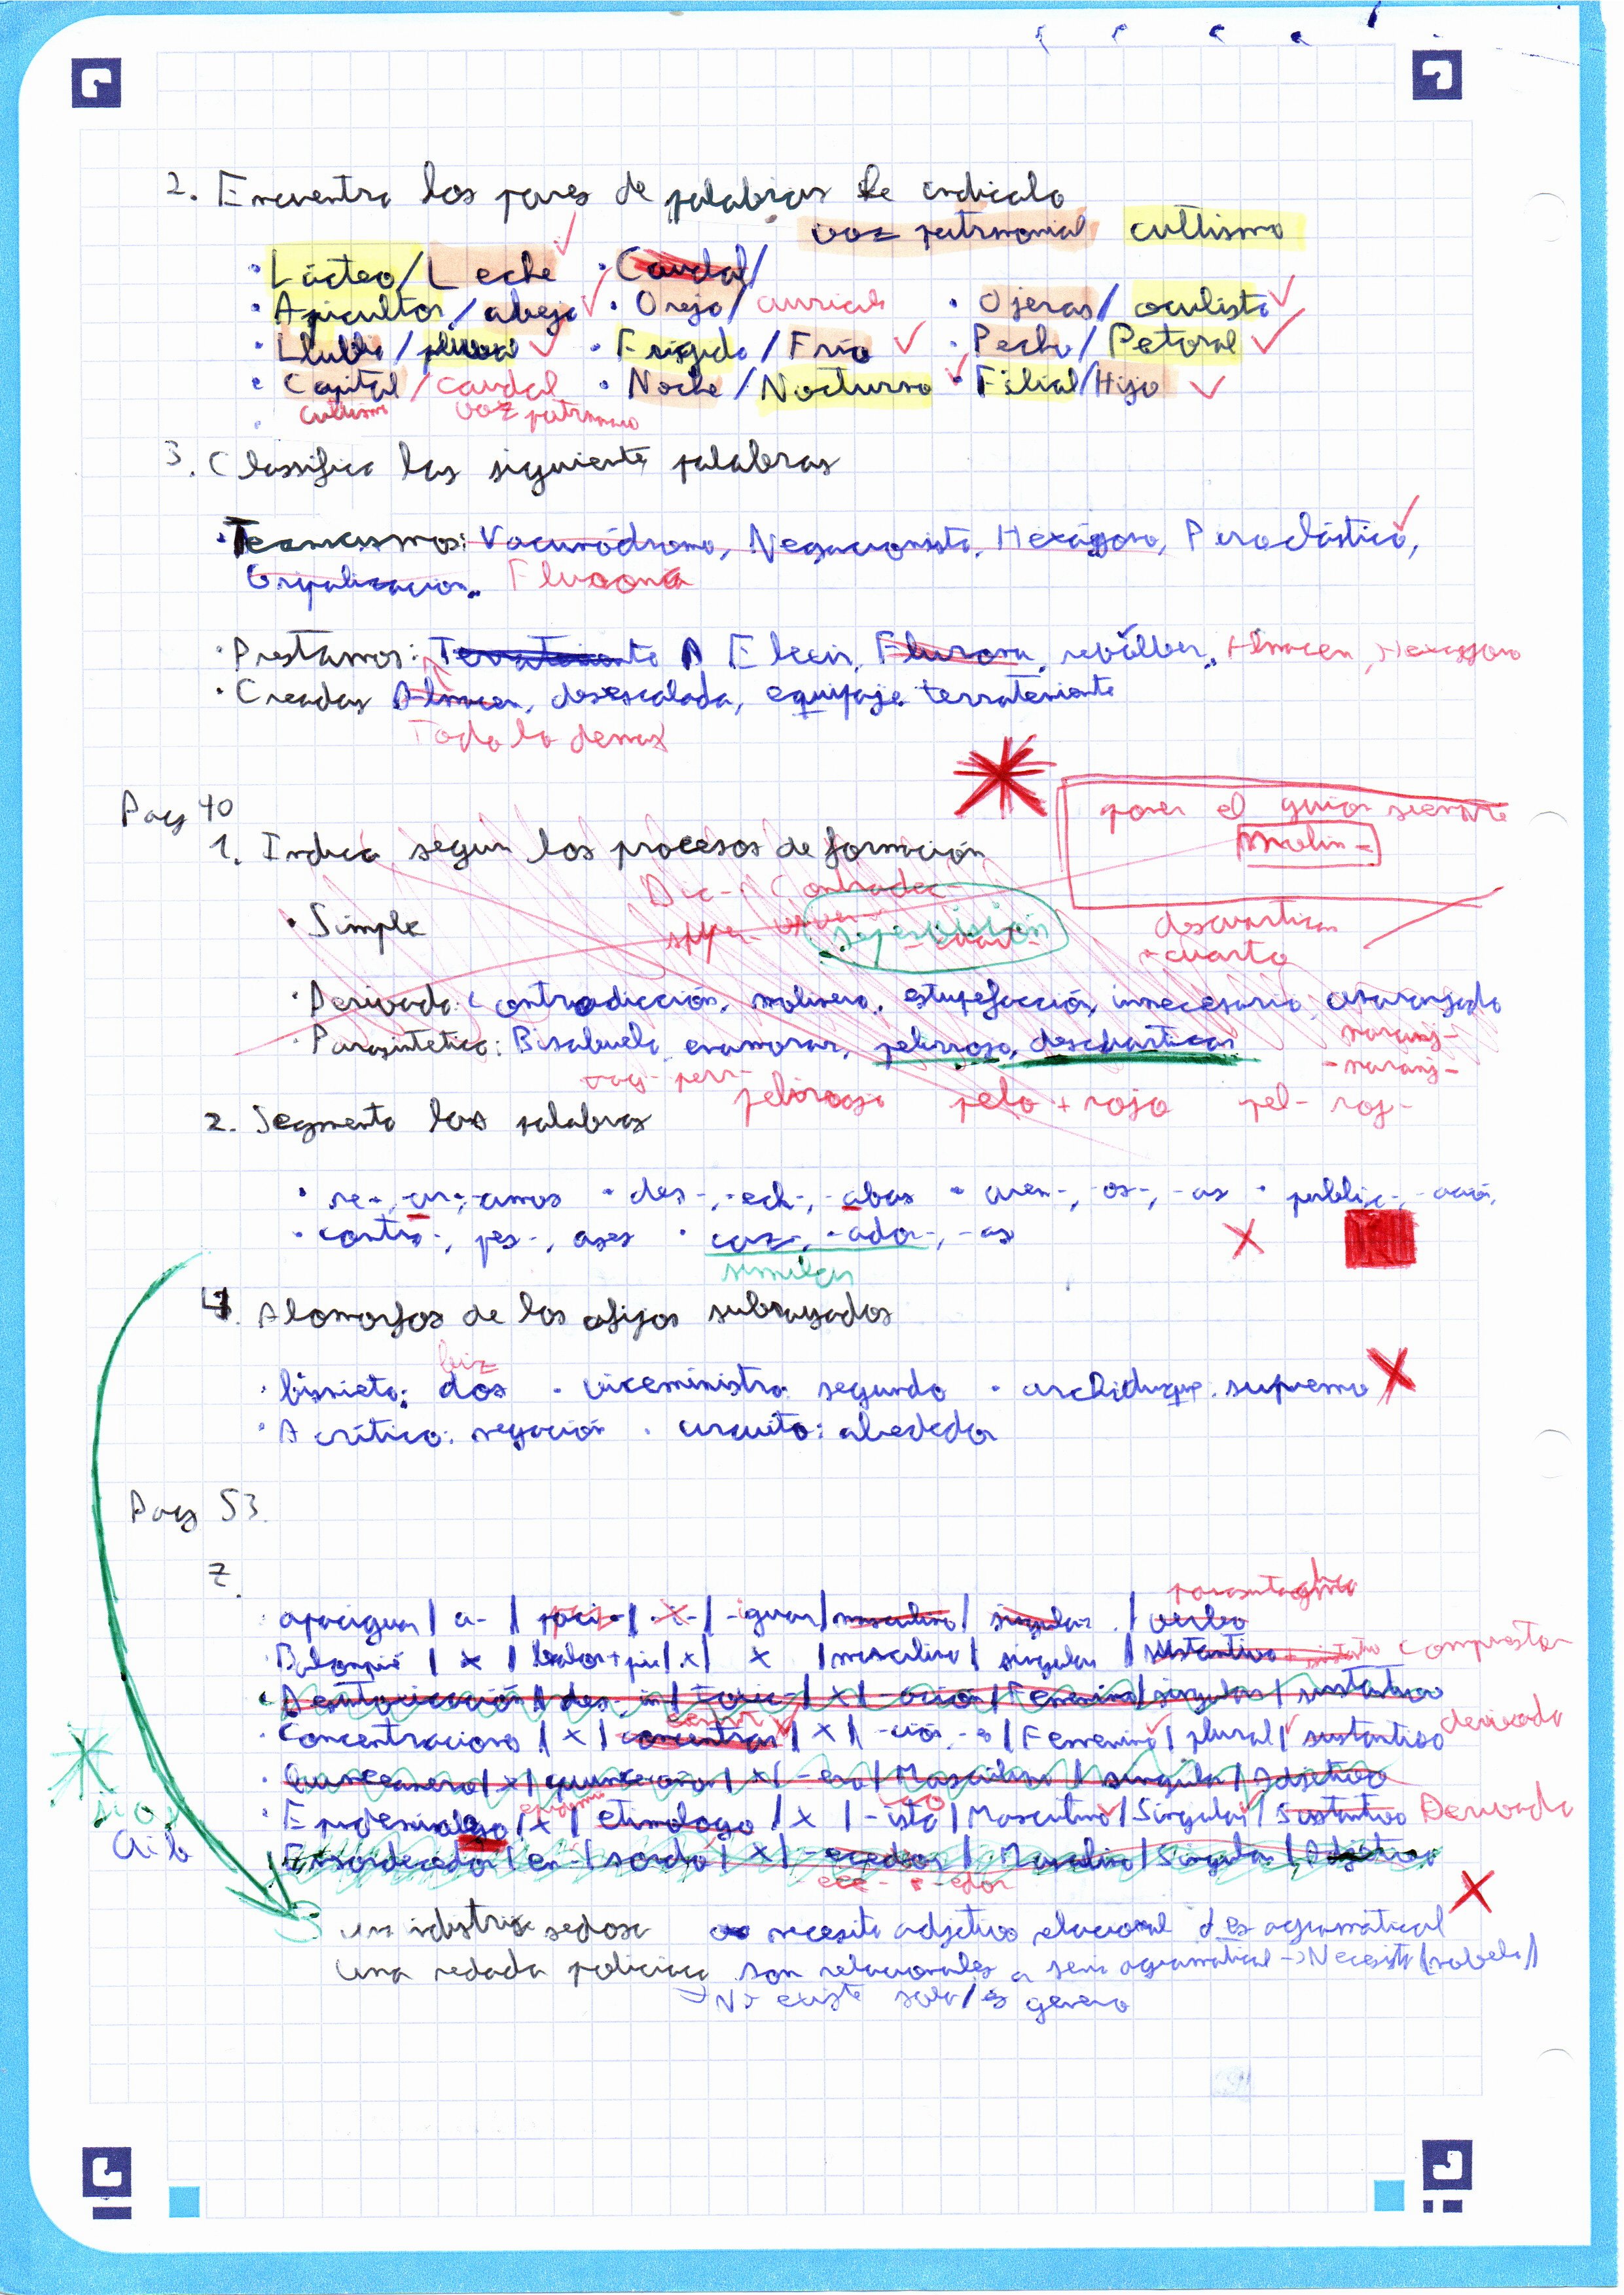 2. Encuentra los pares de palabras e indicalo
voz patrimonial cultismo
· Lácteo/Leche · Caudal/
· Apicultor/abeja · Oreja/auricula · Ojeras/oculista
· Lluvia/pluvial · Frígido/Frío · Pecho/Petoral
· Capital/caudal · Noche/Nocturno · Filial/Hijo
cultismo voz patrimonio
3. Classifica las siguiente palabras
· Tecnicismos: Vacunódromo, Negacionista, Hexágono, Piroclástico,
Gripalizacion. Flurona
· Prestamos: Terrateniente A Elecir, Flurona, revólver, Almacen, Hexagono
· Creadas Almacen, desescalada, equipaje terrateniente
Todo lo demas
Pag 40
poner el guion siempre
molin-
1. Indica segun los procesos de formación
Dic- Contradec-
· Simple
supervisión
descuartizar
-cuarto
· Derivada: Contradicción, molinero, estupefacción, innecesario, anaranjado
· Parasintetico: Bisabuela, enamorar, pelirroja, descuartizar
naranj-
-naranj-
pelirrojo pelo + rojo pel- roj-
2. Segmenta las palabras
· re-, -un-, -amos · des-, -ech-, -abas · aren-, -os-, -as · public-, -ación,
· contra-, pes-, ases · caz-, -ador-, -as
similar
4. Alomorfos de los afijos subrayados
biz
· bisnieta: dos · viceministra: segundo · archiduque: supremo
· Acrítico: negación · circuito: alrededor
Pag 53
2.
parasintagma
· apaciguar | a- | paci- | -i- | -iguar | masculino | singular | verbo
· Balonpié | x | balon+pie | x | x | masculino | singular | sustantivo compuesta
· Desintoxicación | des-, in | toxic- | x | -ación | Femenino | singular | sustantivo
· Concentraciones | x | concentrar | x | -ción, -s | Femenino | plural | sustantivo derivada
· Quinceañero | x | quinceaño | x | -ero | Masculino | singular | Adjetivo
· | x | etimologo | x | -ista | Masculino | Singular | Sustantivo Derivada
· Ensordecedor | en- | sordo | x | -ecedor | Masculino | Singular | Adjetivo
ece- -edor
una industria sedosa necesita adjetivo relacional es agramatical
una redada policiaca son relacionales semi agramatical → Necesita
→ No existe genero